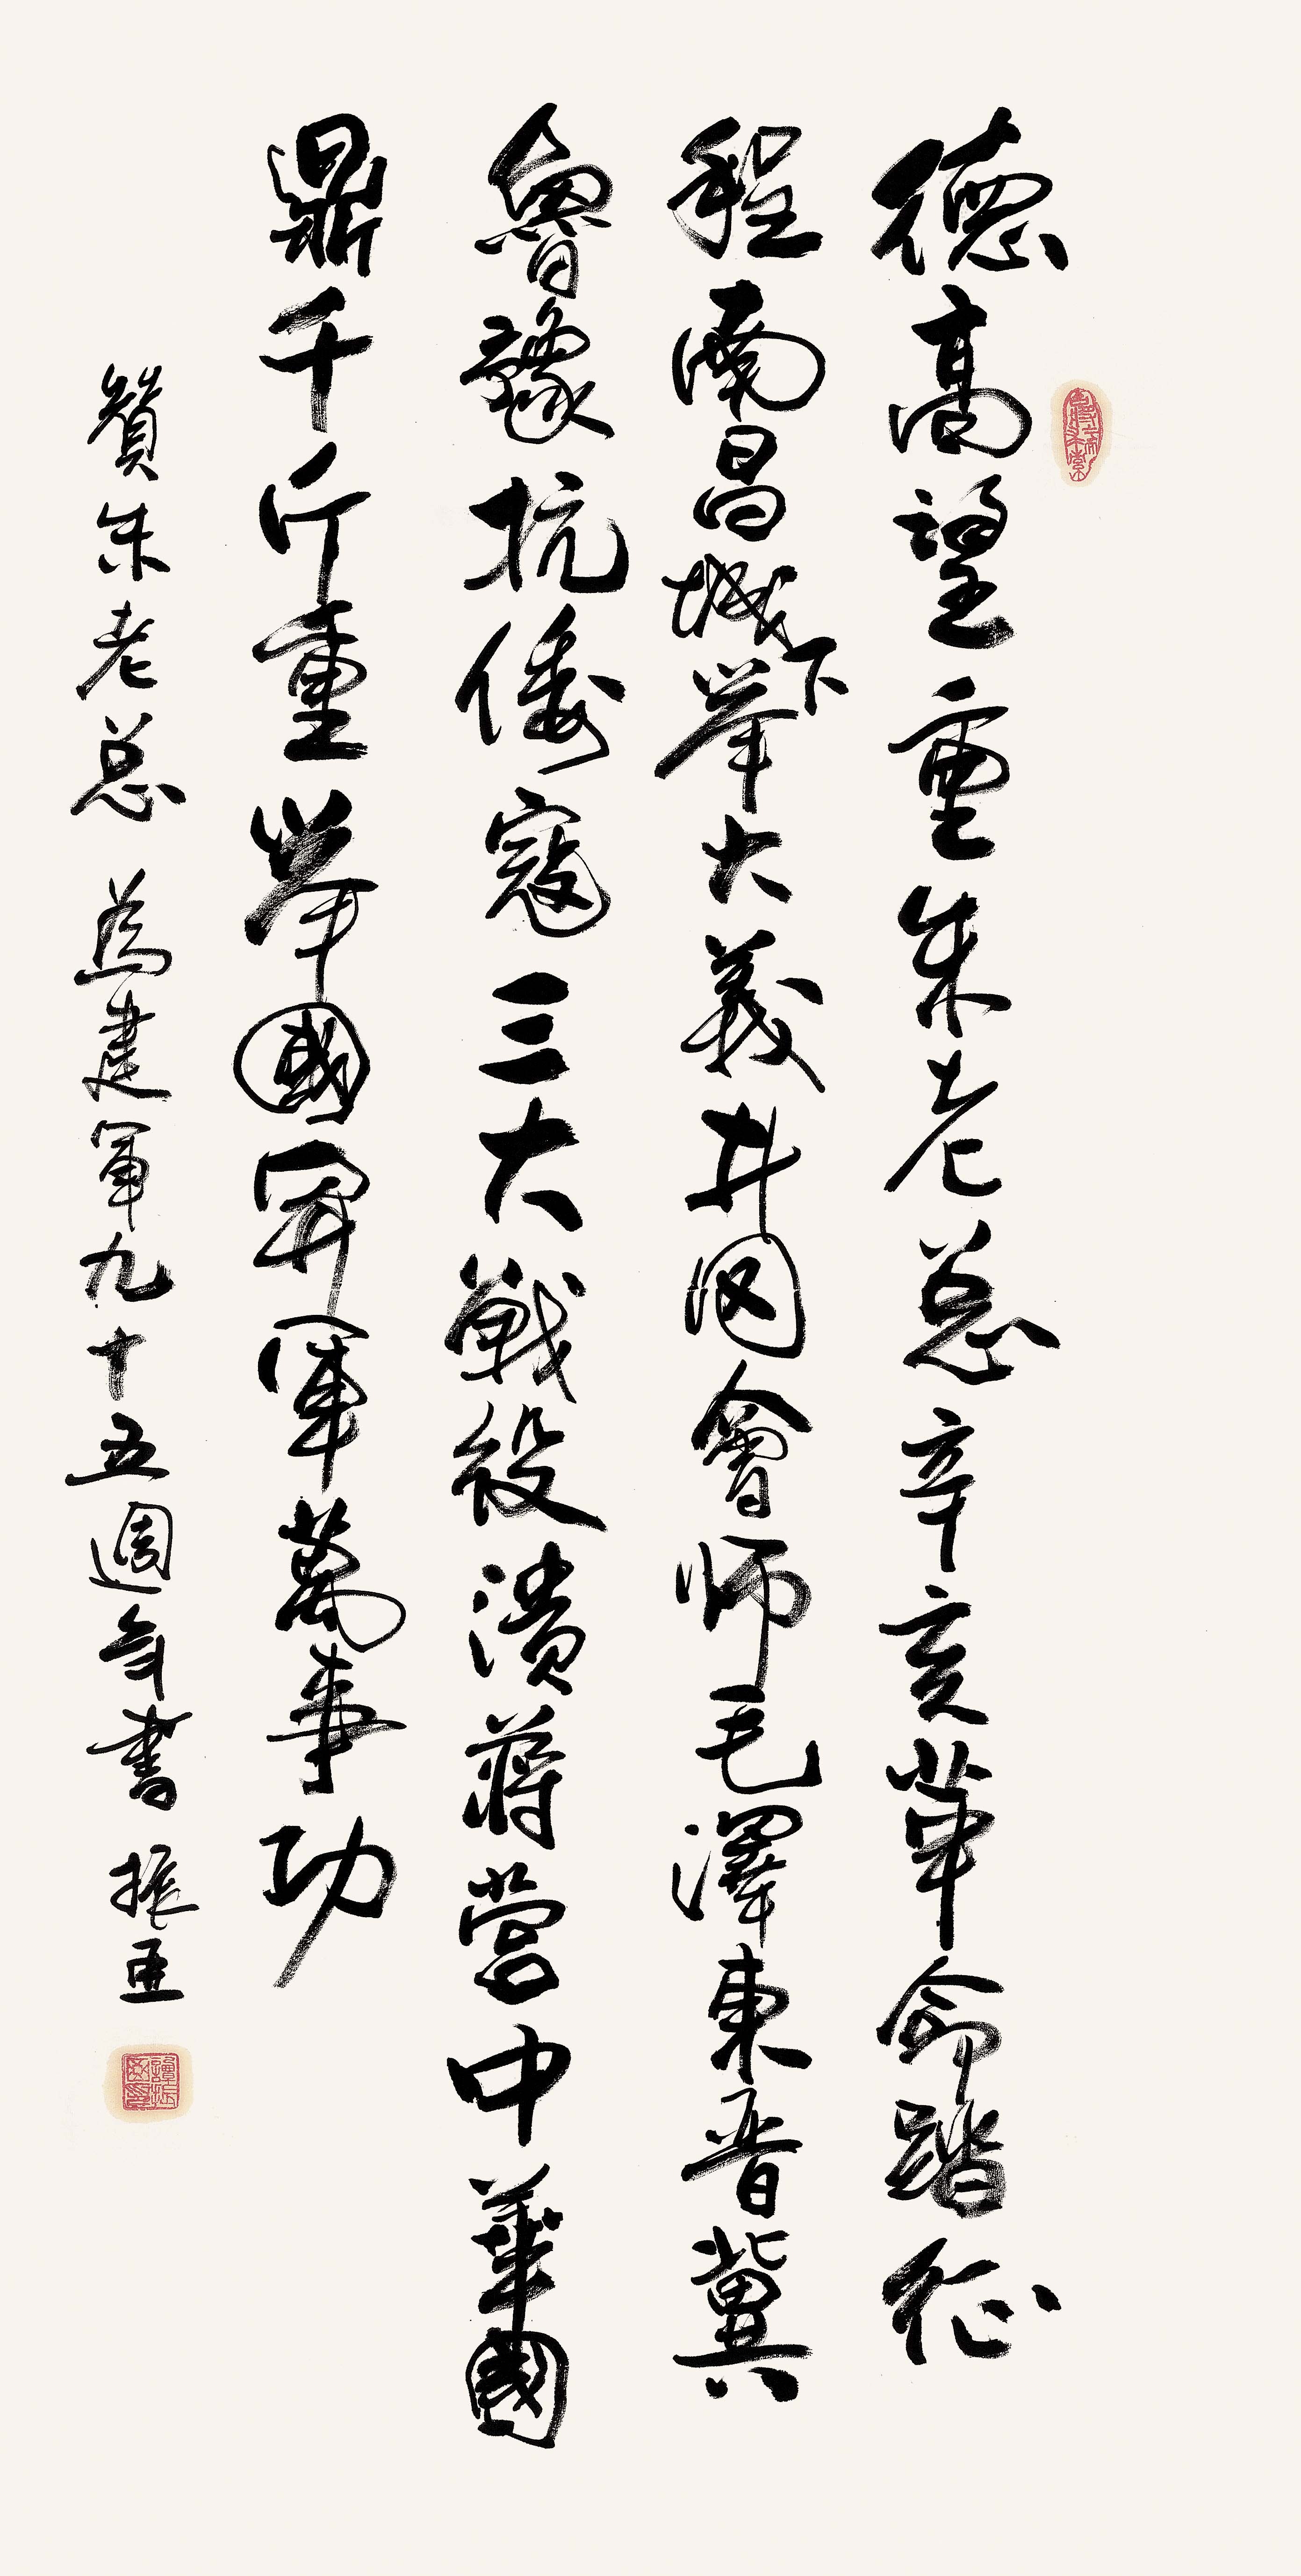 德高望重朱老总辛亥革命踏征
程南昌城下举大義井冈會师毛澤東晋冀
魯豫抗倭寇三大戰役潰蔣營中華國
鼎千斤重举國開軍萬事功
贊朱老总 為建軍九十五週年書 振亚